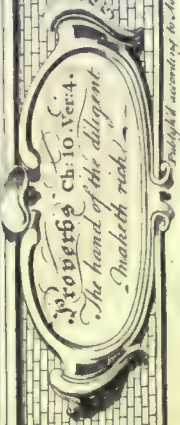 Proverbs Ch: 10. Ver: 4.
The hand of the diligent
maketh rich.
Publish'd according to